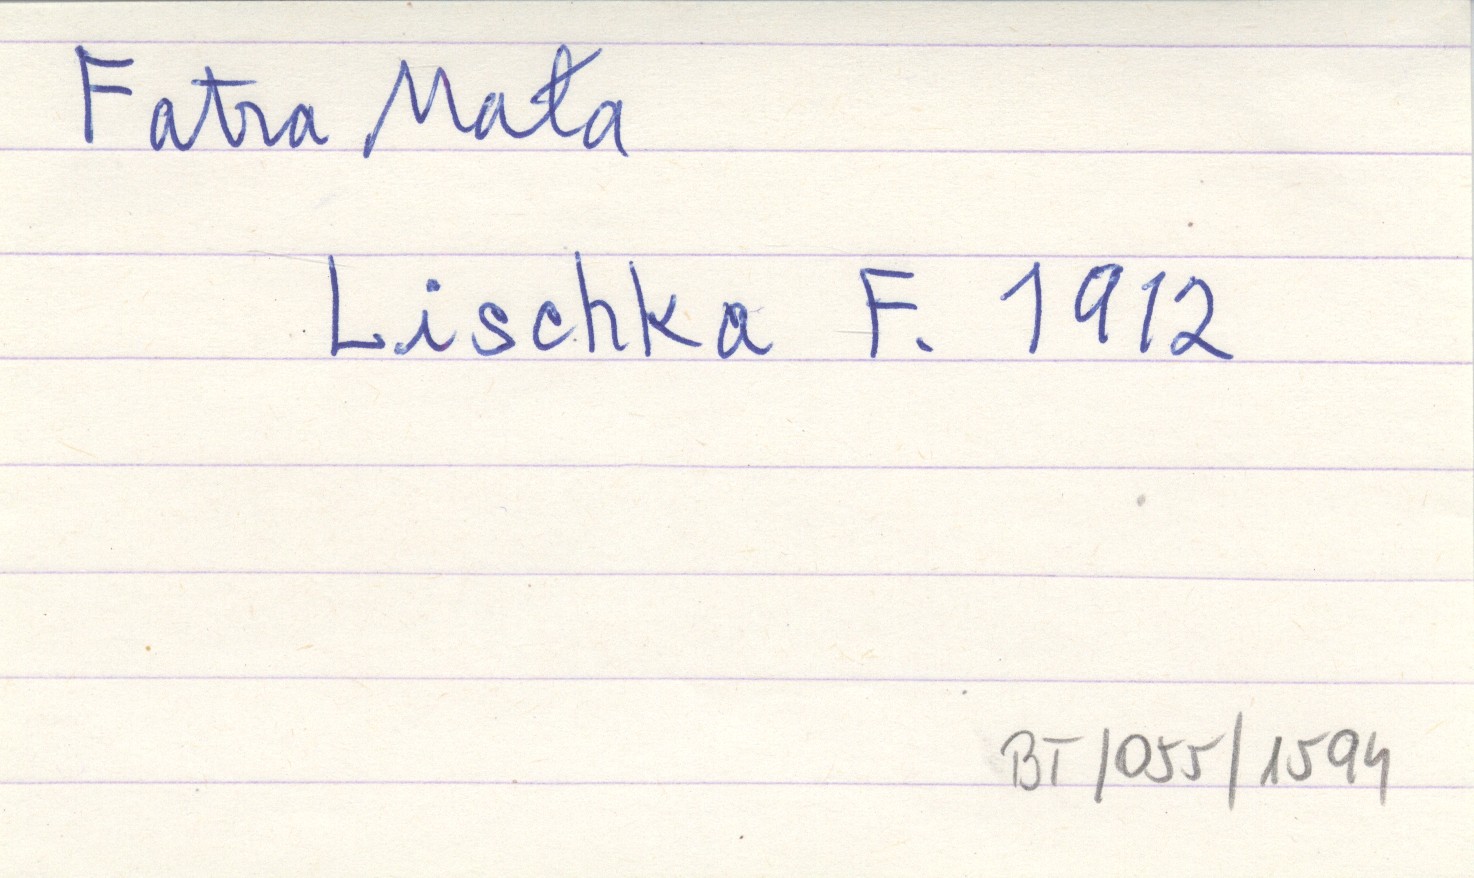 Fatra Mała
Lischka F. 1912
BT/055/1594